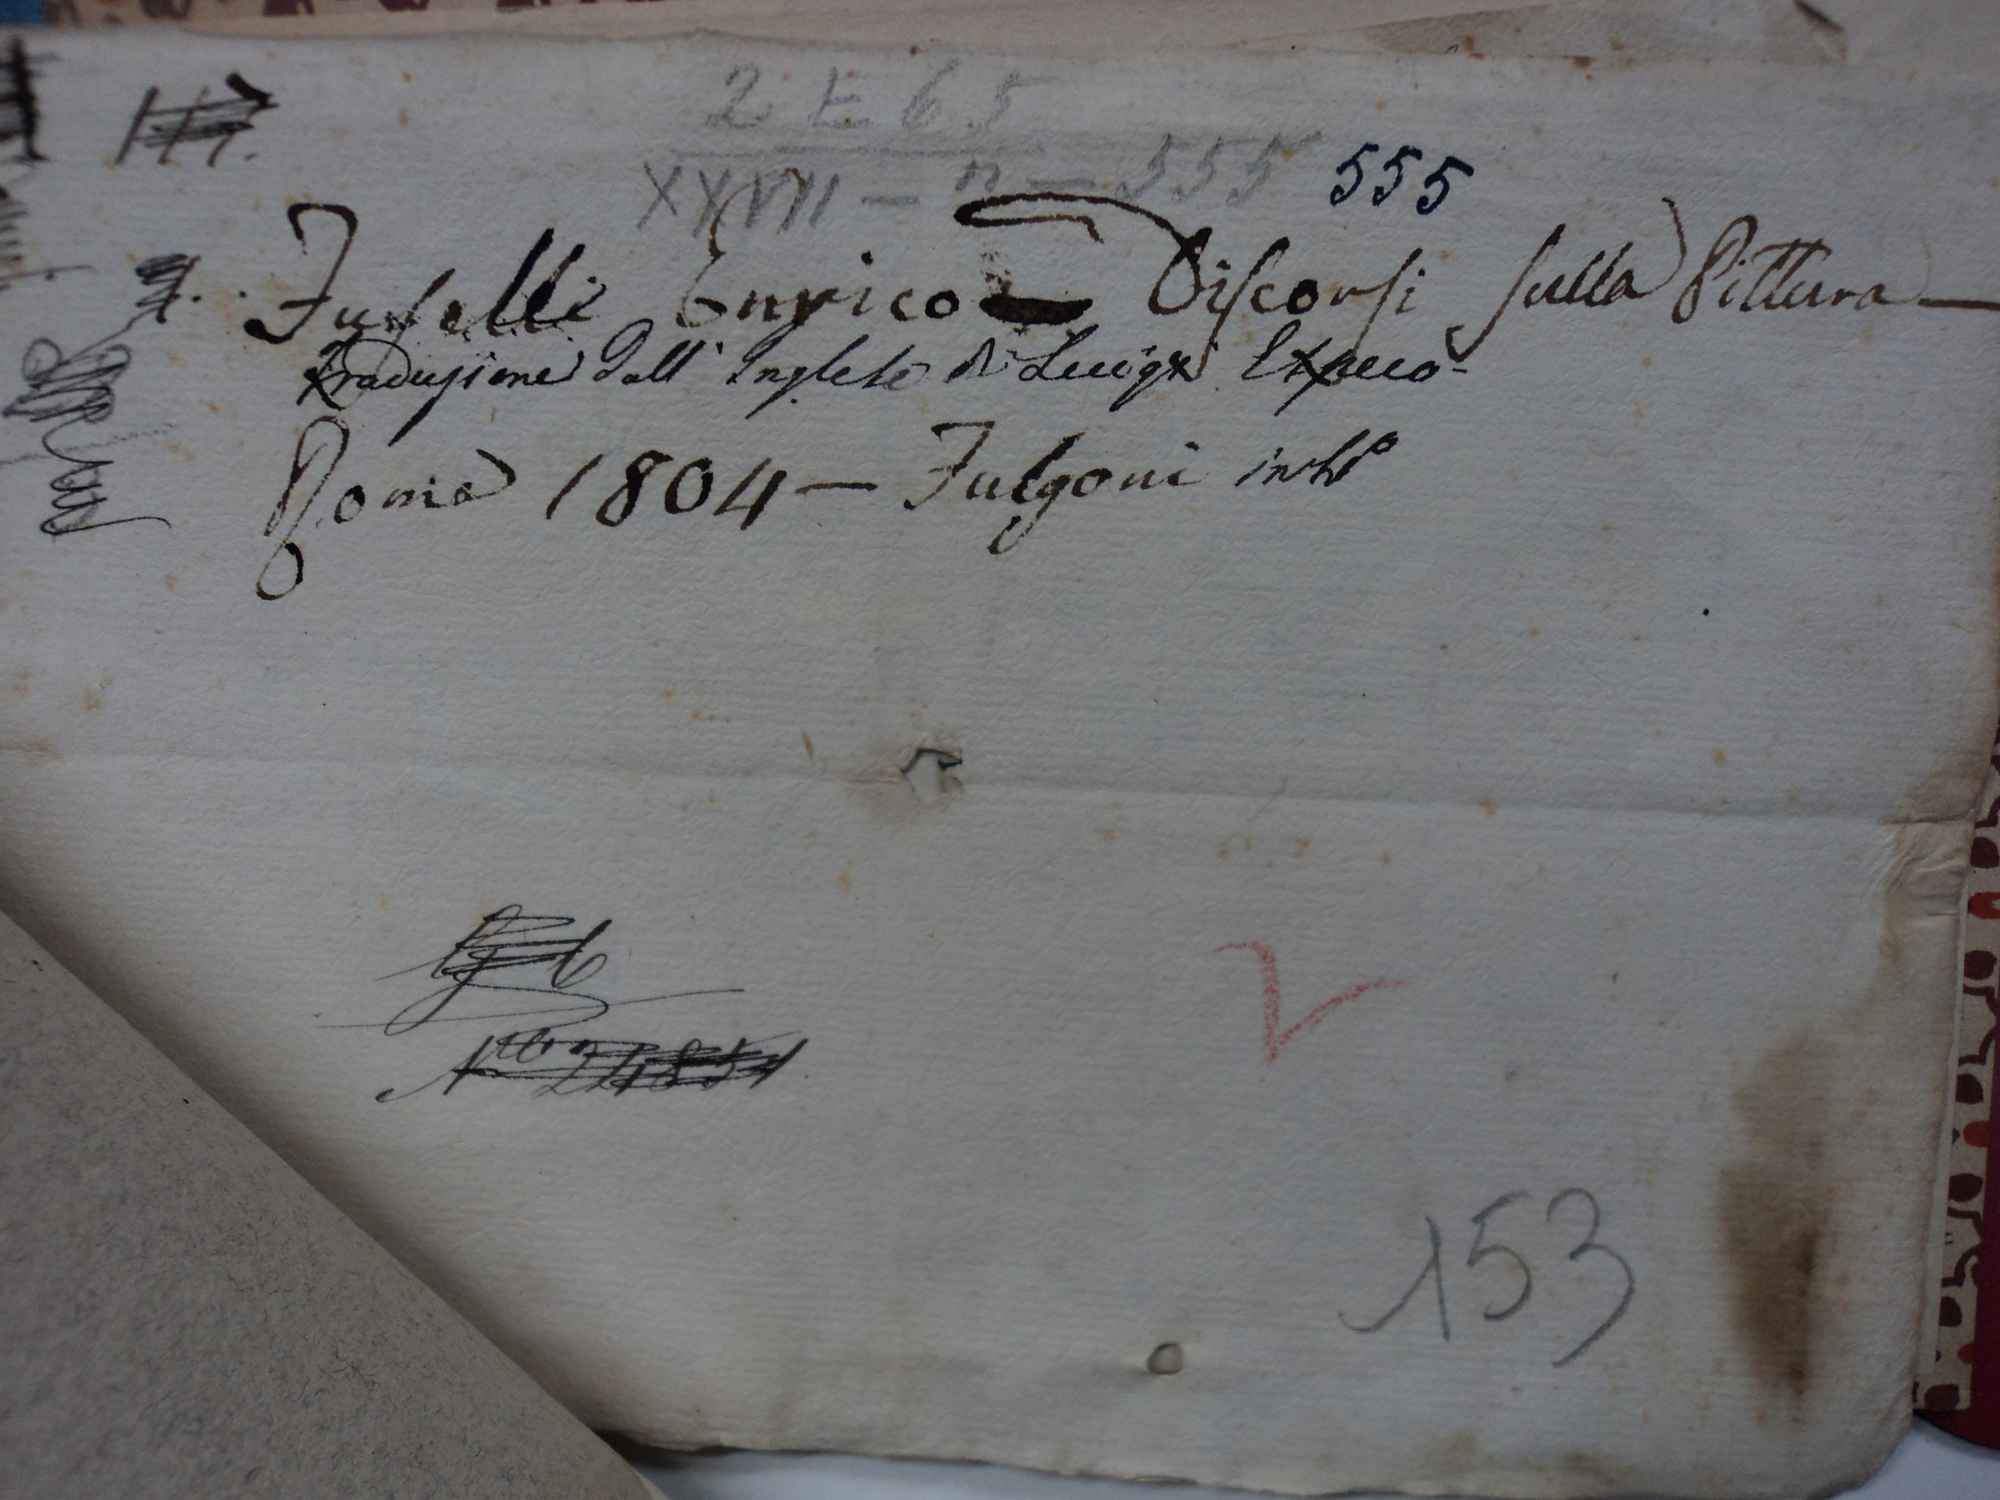 2 E 6 5
XXVII — n — 555 555
Fuselli Enrico Discorsi sulla Pittura —
traduzione dall' Inglese di Luigi
Roma 1804 — Fulgoni in
N 24854
153